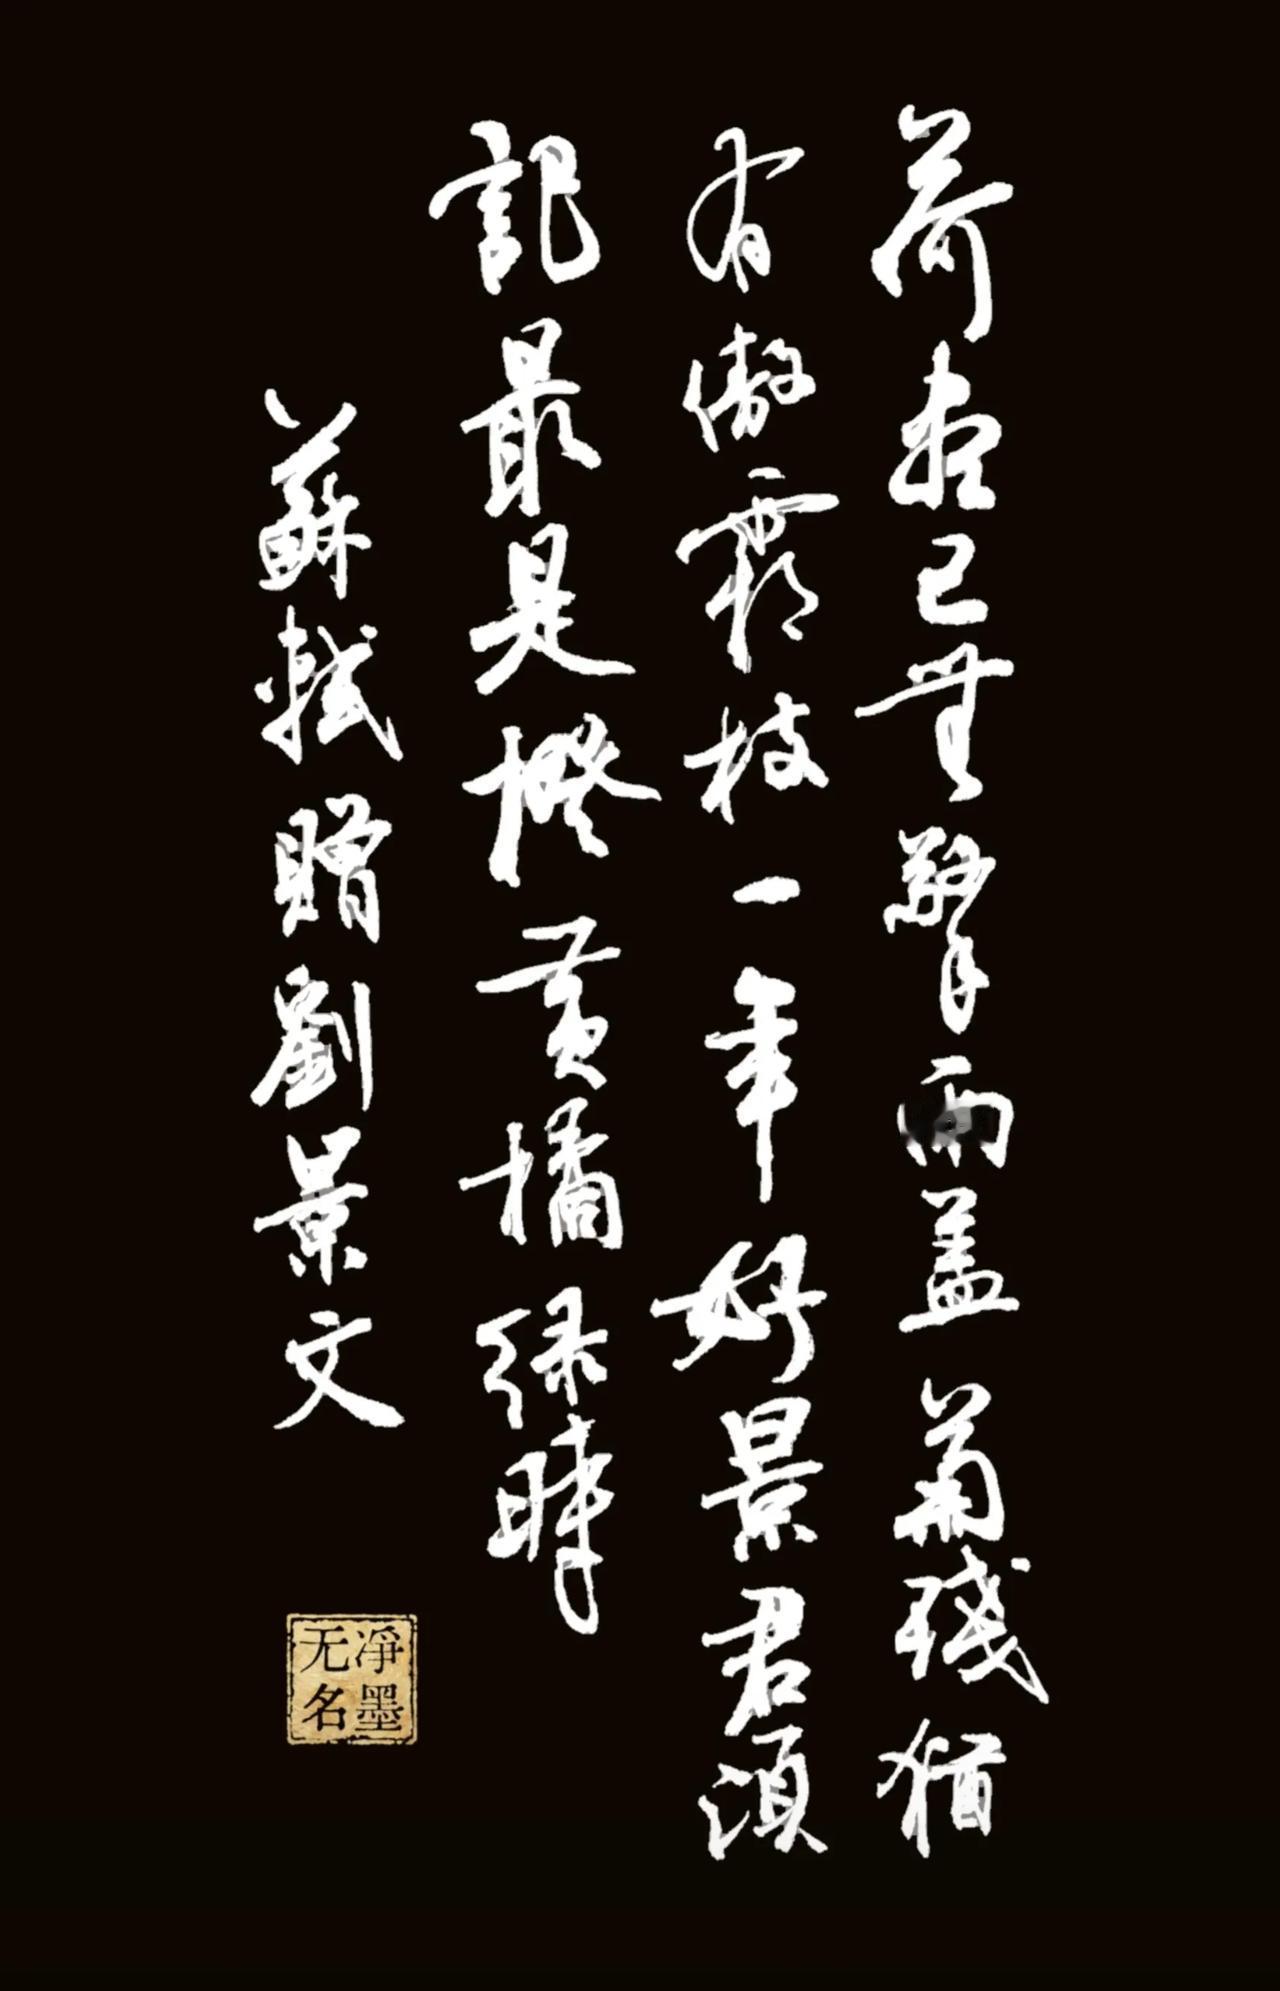 荷盡已無擎雨盖菊殘猶
有傲霜枝一年好景君須
記最是橙黄橘緑時
蘇軾贈劉景文
净墨
无名